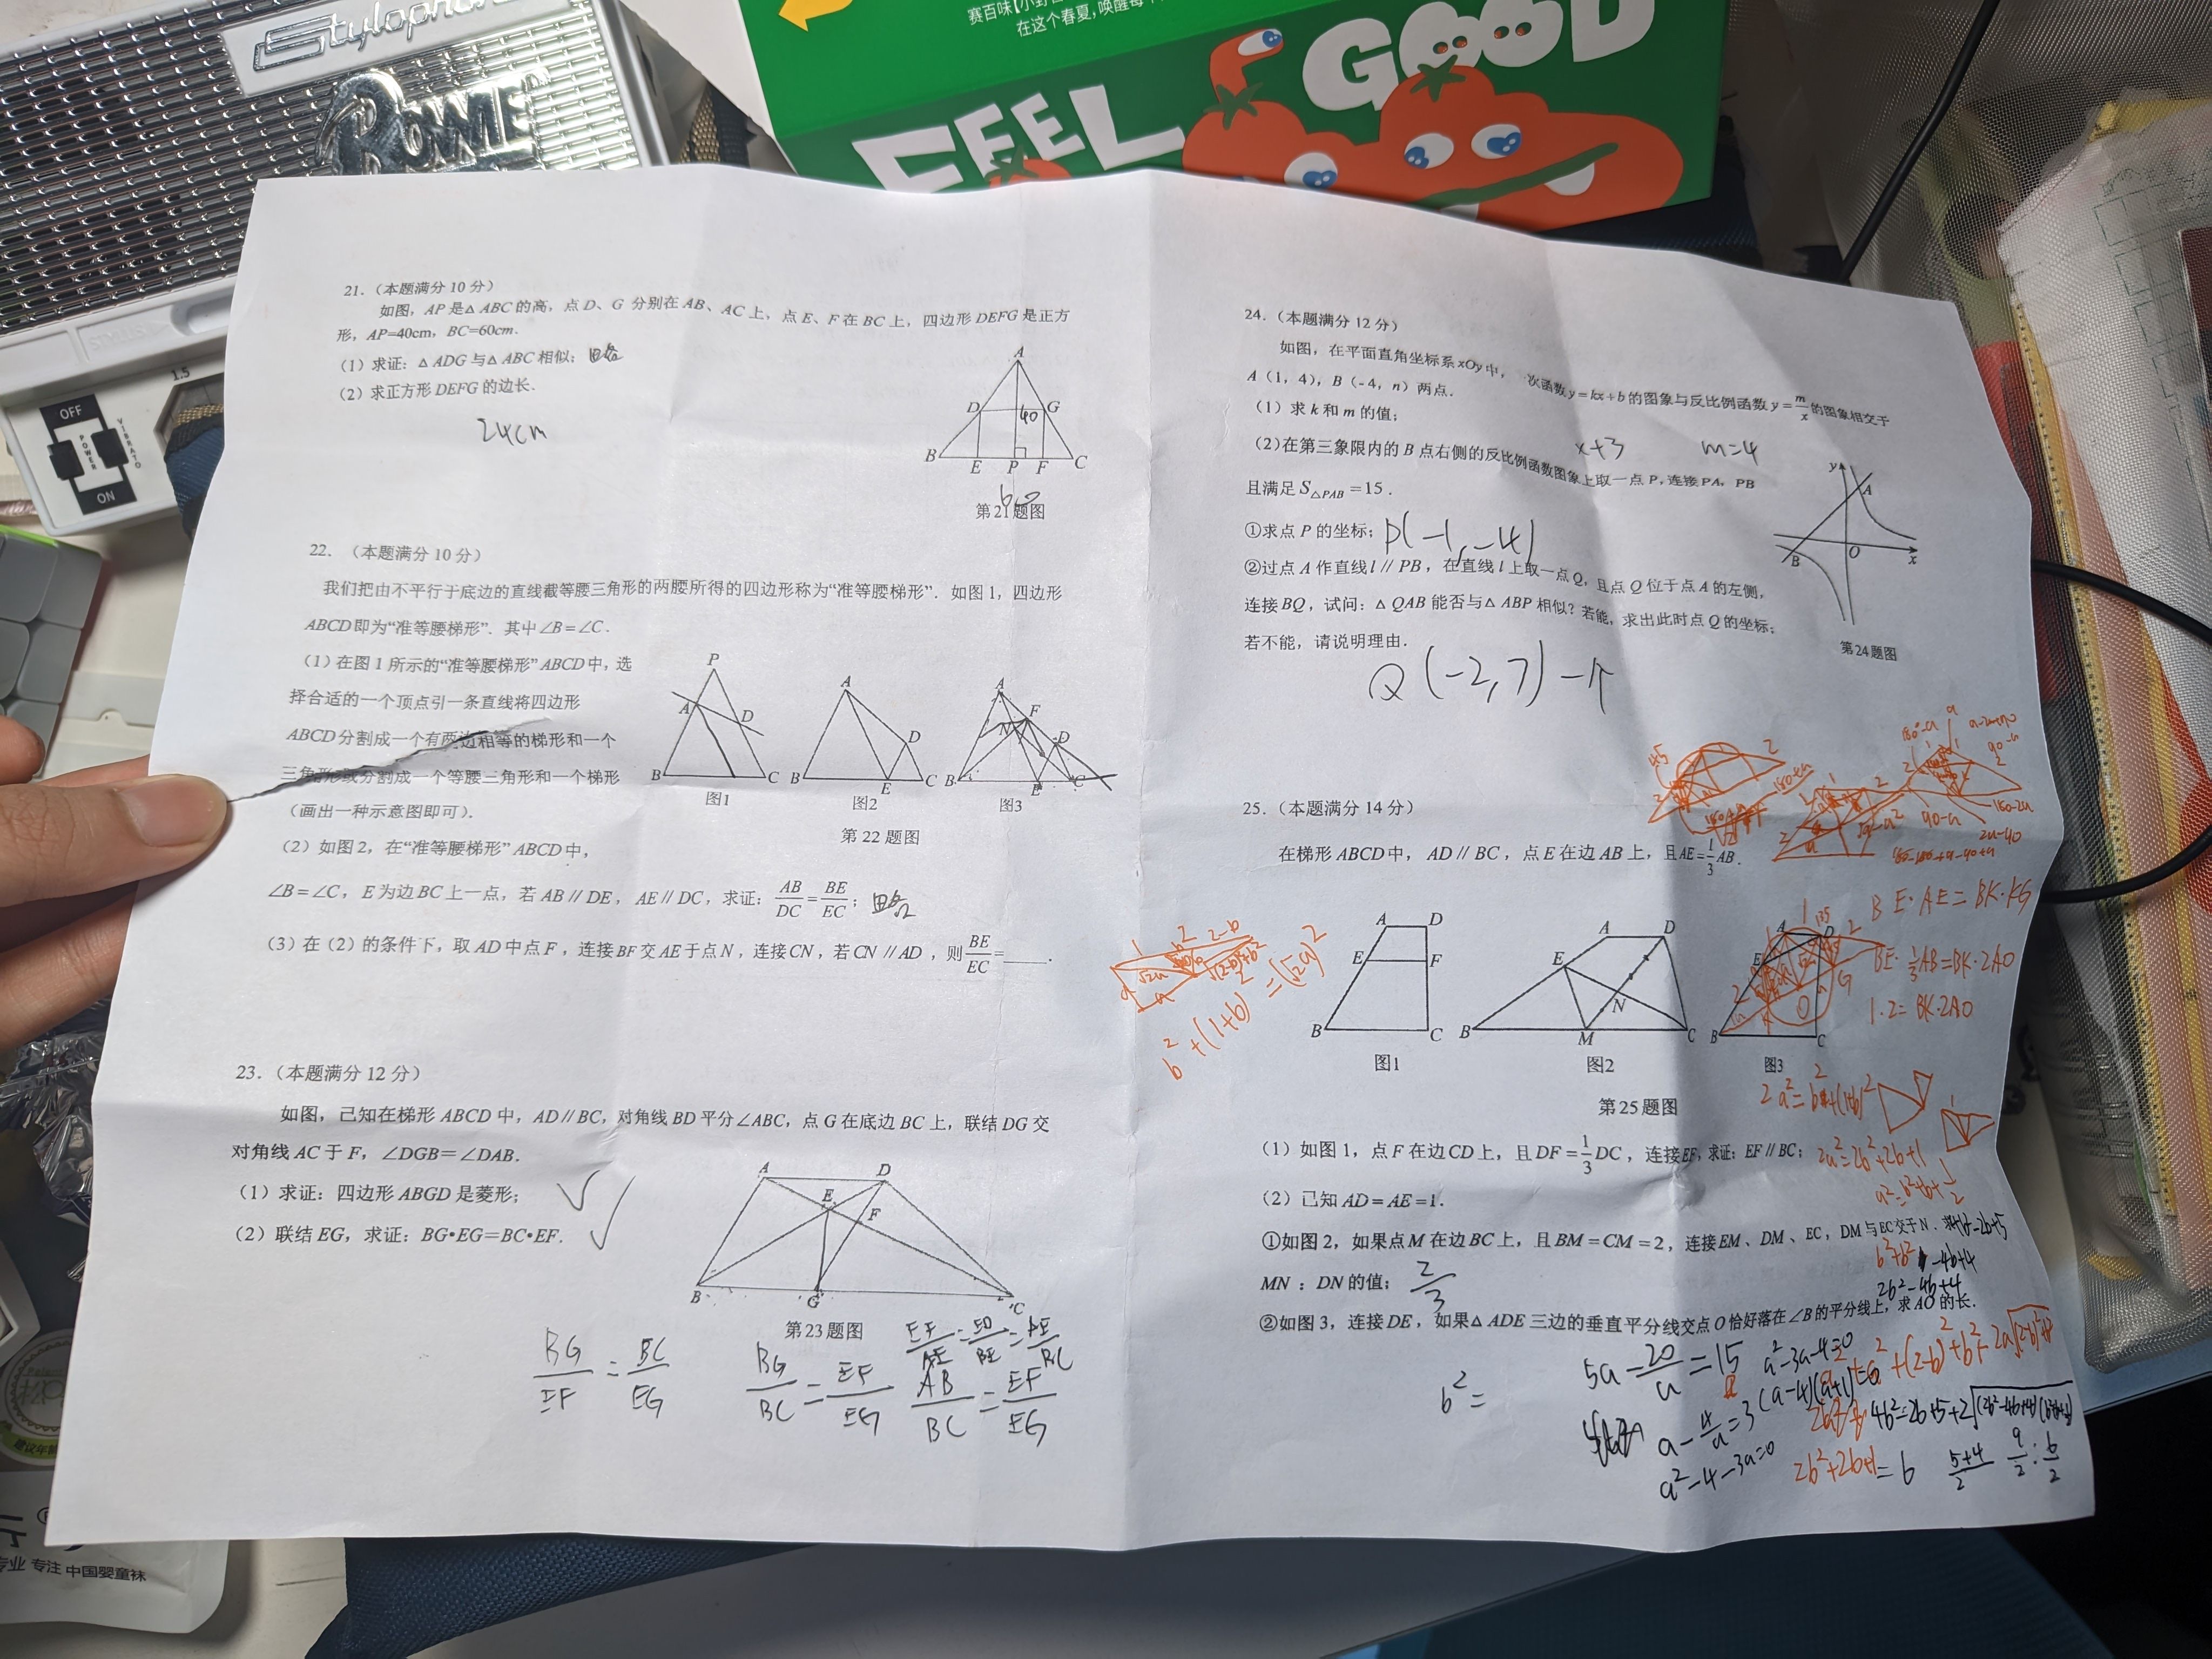 Stylophone
BOWIE
1.5
OFF
POWER
VIBRATO
ON
在这个春夏,唤醒每
FEEL GOOD
21.（本题满分 10 分）
如图，AP 是△ ABC 的高，点 D、G 分别在 AB、AC 上，点 E、F 在 BC 上，四边形 DEFG 是正方
形，AP=40cm，BC=60cm.
（1）求证：△ ADG 与△ ABC 相似；略
（2）求正方形 DEFG 的边长.
24cm
A
D
40
G
B
E
P
F
C
60
第21题图
22. （本题满分 10 分）
我们把由不平行于底边的直线截等腰三角形的两腰所得的四边形称为“准等腰梯形”. 如图 1，四边形
ABCD 即为“准等腰梯形”. 其中∠B＝∠C .
（1）在图 1 所示的“准等腰梯形” ABCD 中，选
择合适的一个顶点引一条直线将四边形
ABCD 分割成一个有两边相等的梯形和一个
三角形或分割成一个等腰三角形和一个梯形
（画出一种示意图即可）.
P
A
D
B
C
图1
A
D
B
E
C
图2
A
F
N
D
B
E
C
图3
第 22 题图
（2）如图 2，在“准等腰梯形” ABCD 中，
∠B＝∠C，E 为边 BC 上一点，若 AB // DE，AE // DC，求证：AB/DC = BE/EC；略
（3）在（2）的条件下，取 AD 中点 F，连接 BF 交 AE 于点 N，连接 CN，若 CN // AD，则 BE/EC =____.
23.（本题满分 12 分）
如图，已知在梯形 ABCD 中，AD // BC，对角线 BD 平分∠ABC，点 G 在底边 BC 上，联结 DG 交
对角线 AC 于 F，∠DGB＝∠DAB.
（1）求证：四边形 ABGD 是菱形；
（2）联结 EG，求证：BG•EG＝BC•EF.
A
D
E
F
B
G
C
第23题图
BG/EF = BC/EG
BG/BC = EF/EG
AB/BC = EF/EG
24.（本题满分 12 分）
如图，在平面直角坐标系 xOy 中，一次函数 y = kx + b 的图象与反比例函数 y = m/x 的图象相交于
A（1，4），B（-4，n）两点.
（1）求 k 和 m 的值；
x+3 m=4
（2）在第三象限内的 B 点右侧的反比例函数图象上取一点 P，连接 PA，PB
且满足 S△PAB =15 .
①求点 P 的坐标；P(-1,-4)
②过点 A 作直线 l // PB，在直线 l 上取一点 Q，且点 Q 位于点 A 的左侧，
连接 BQ，试问：△ QAB 能否与△ ABP 相似？若能，求出此时点 Q 的坐标；
若不能，请说明理由.
Q(-2,7) 一个
y
A
B
O
x
第24题图
25.（本题满分 14 分）
在梯形 ABCD 中， AD // BC，点 E 在边 AB 上，且 AE=1/3 AB .
BE·AE=BK·KG
BE·1/3AB=BK·2AO
1·2=BK·2AO
A
D
E
F
B
C
图1
A
D
E
N
B
M
C
图2
A
D
E
G
O
B
C
图3
第25题图
b²+(1+b)²=(√2a)²
2a²=b²+(1+b)²
2a²=2b²+2b+1
a²=b²+b+1/2
（1）如图 1，点 F 在边 CD 上，且 DF = 1/3 DC，连接 EF，求证：EF // BC；
（2）已知 AD＝AE＝1.
①如图 2，如果点 M 在边 BC 上，且 BM＝CM＝2，连接 EM、DM、EC，DM 与 EC 交于 N. 求
MN：DN 的值；2/3
2b²-4b+4
②如图 3，连接 DE，如果△ ADE 三边的垂直平分线交点 O 恰好落在∠B 的平分线上，求 AO 的长.
b²=
5a-20/a=15
a²-3a-4=0
(a-4)(a+1)=0
a-4/a=3
a²-4-3a=0
2b²+2b+1=b
5+4/2
9/2:b/2
专业 专注 中国婴童袜